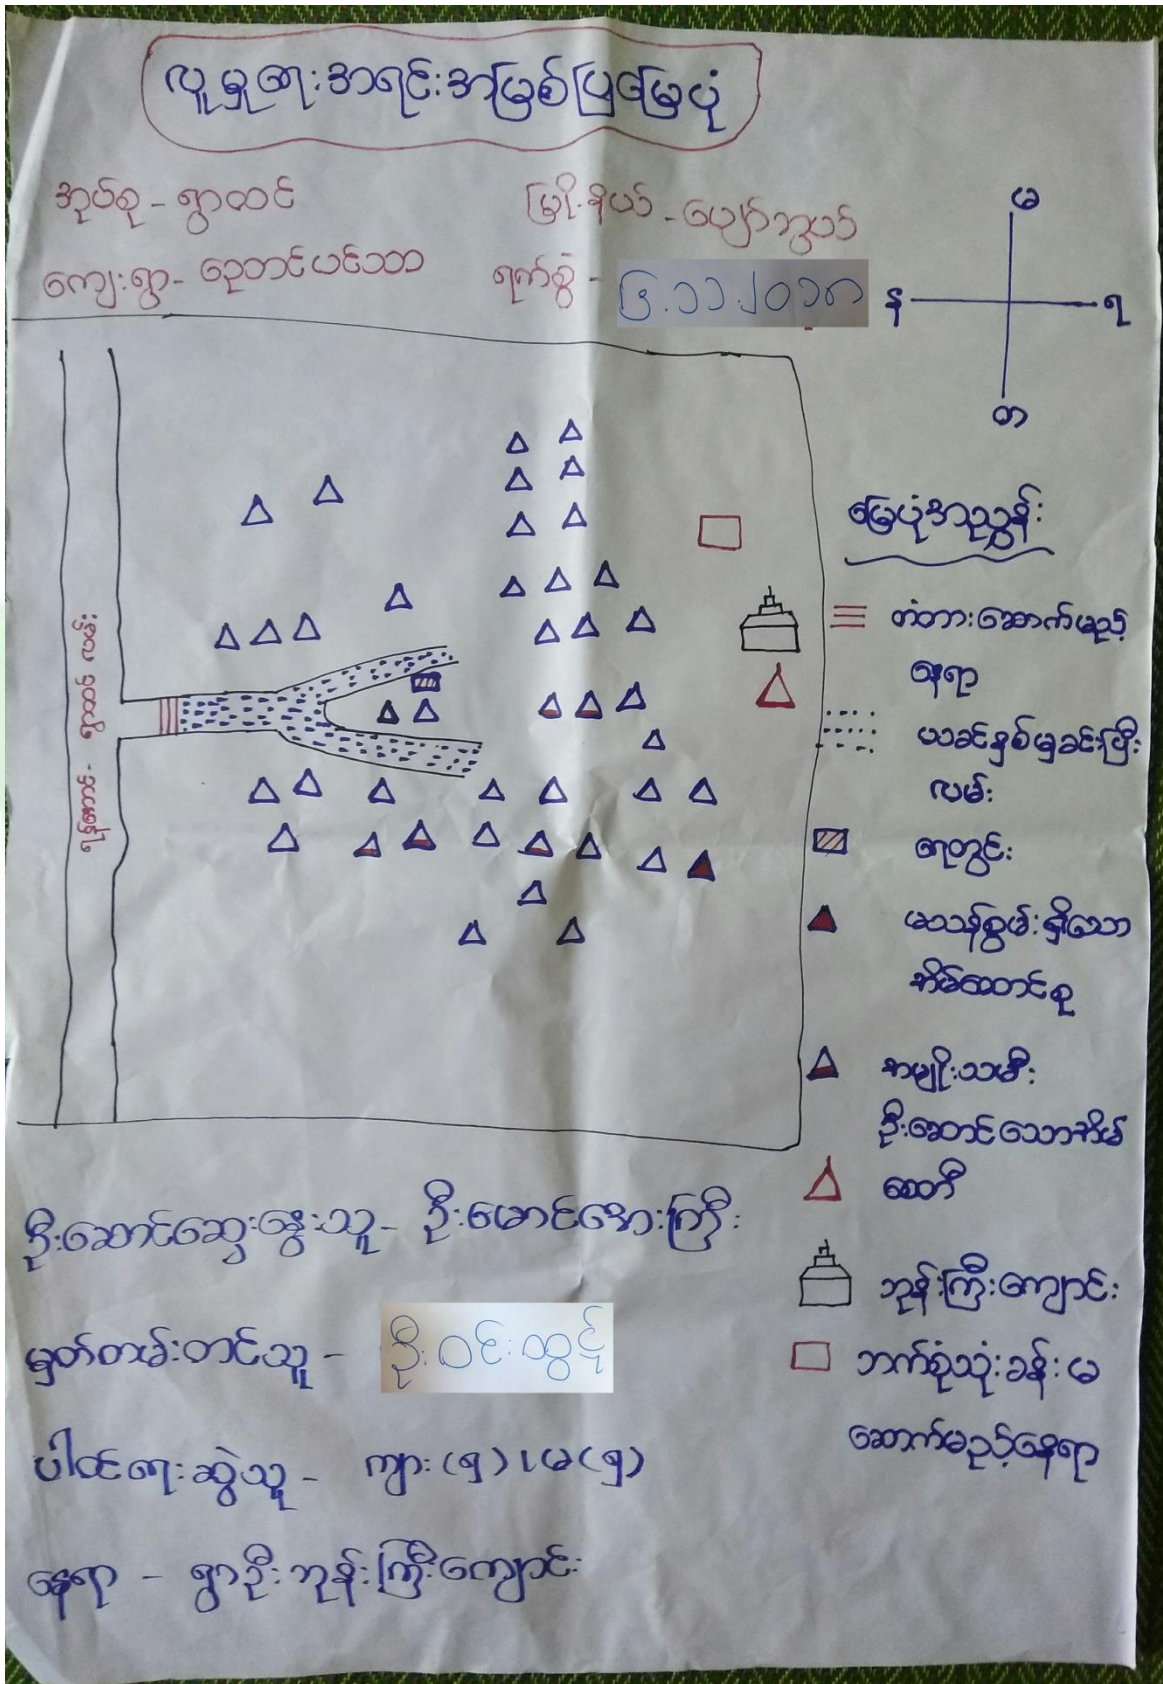 လူမှုရေးအရင်းအမြစ်ပြမြေပုံ
အုပ်စု - ရွာထင်
မြို့နယ် - ပျော်ဘွယ်
ကျေးရွာ - ညောင်ပင်သာ
ရက်စွဲ - ၆.၁၁.၂၀၁၈
မ
န
ရ
တ
မြေပုံအညွှန်း
တံတားဆောက်မည့်
နေရာ
ယခင်နှစ်မှခင်းပြီး
လမ်း
ရေတွင်း
မသန်စွမ်းရှိသော
အိမ်ထောင်စု
အမျိုးသမီး
ဦးဆောင်သောအိမ်
စေတီ
ဘုန်းကြီးကျောင်း
ဘက်စုံသုံးခန်းမ
ဆောက်မည့်နေရာ
ရွာထင် လမ်း
ဦးဆောင်ဆွေးနွေးသူ - ဦးမောင်အေးကြီး
မှတ်တမ်းတင်သူ - ဦးဝင်းထွဋ်
ပါဝင်ရေးဆွဲသူ - ကျား(၅)၊ မ(၅)
နေရာ - ရွာဦးဘုန်းကြီးကျောင်း